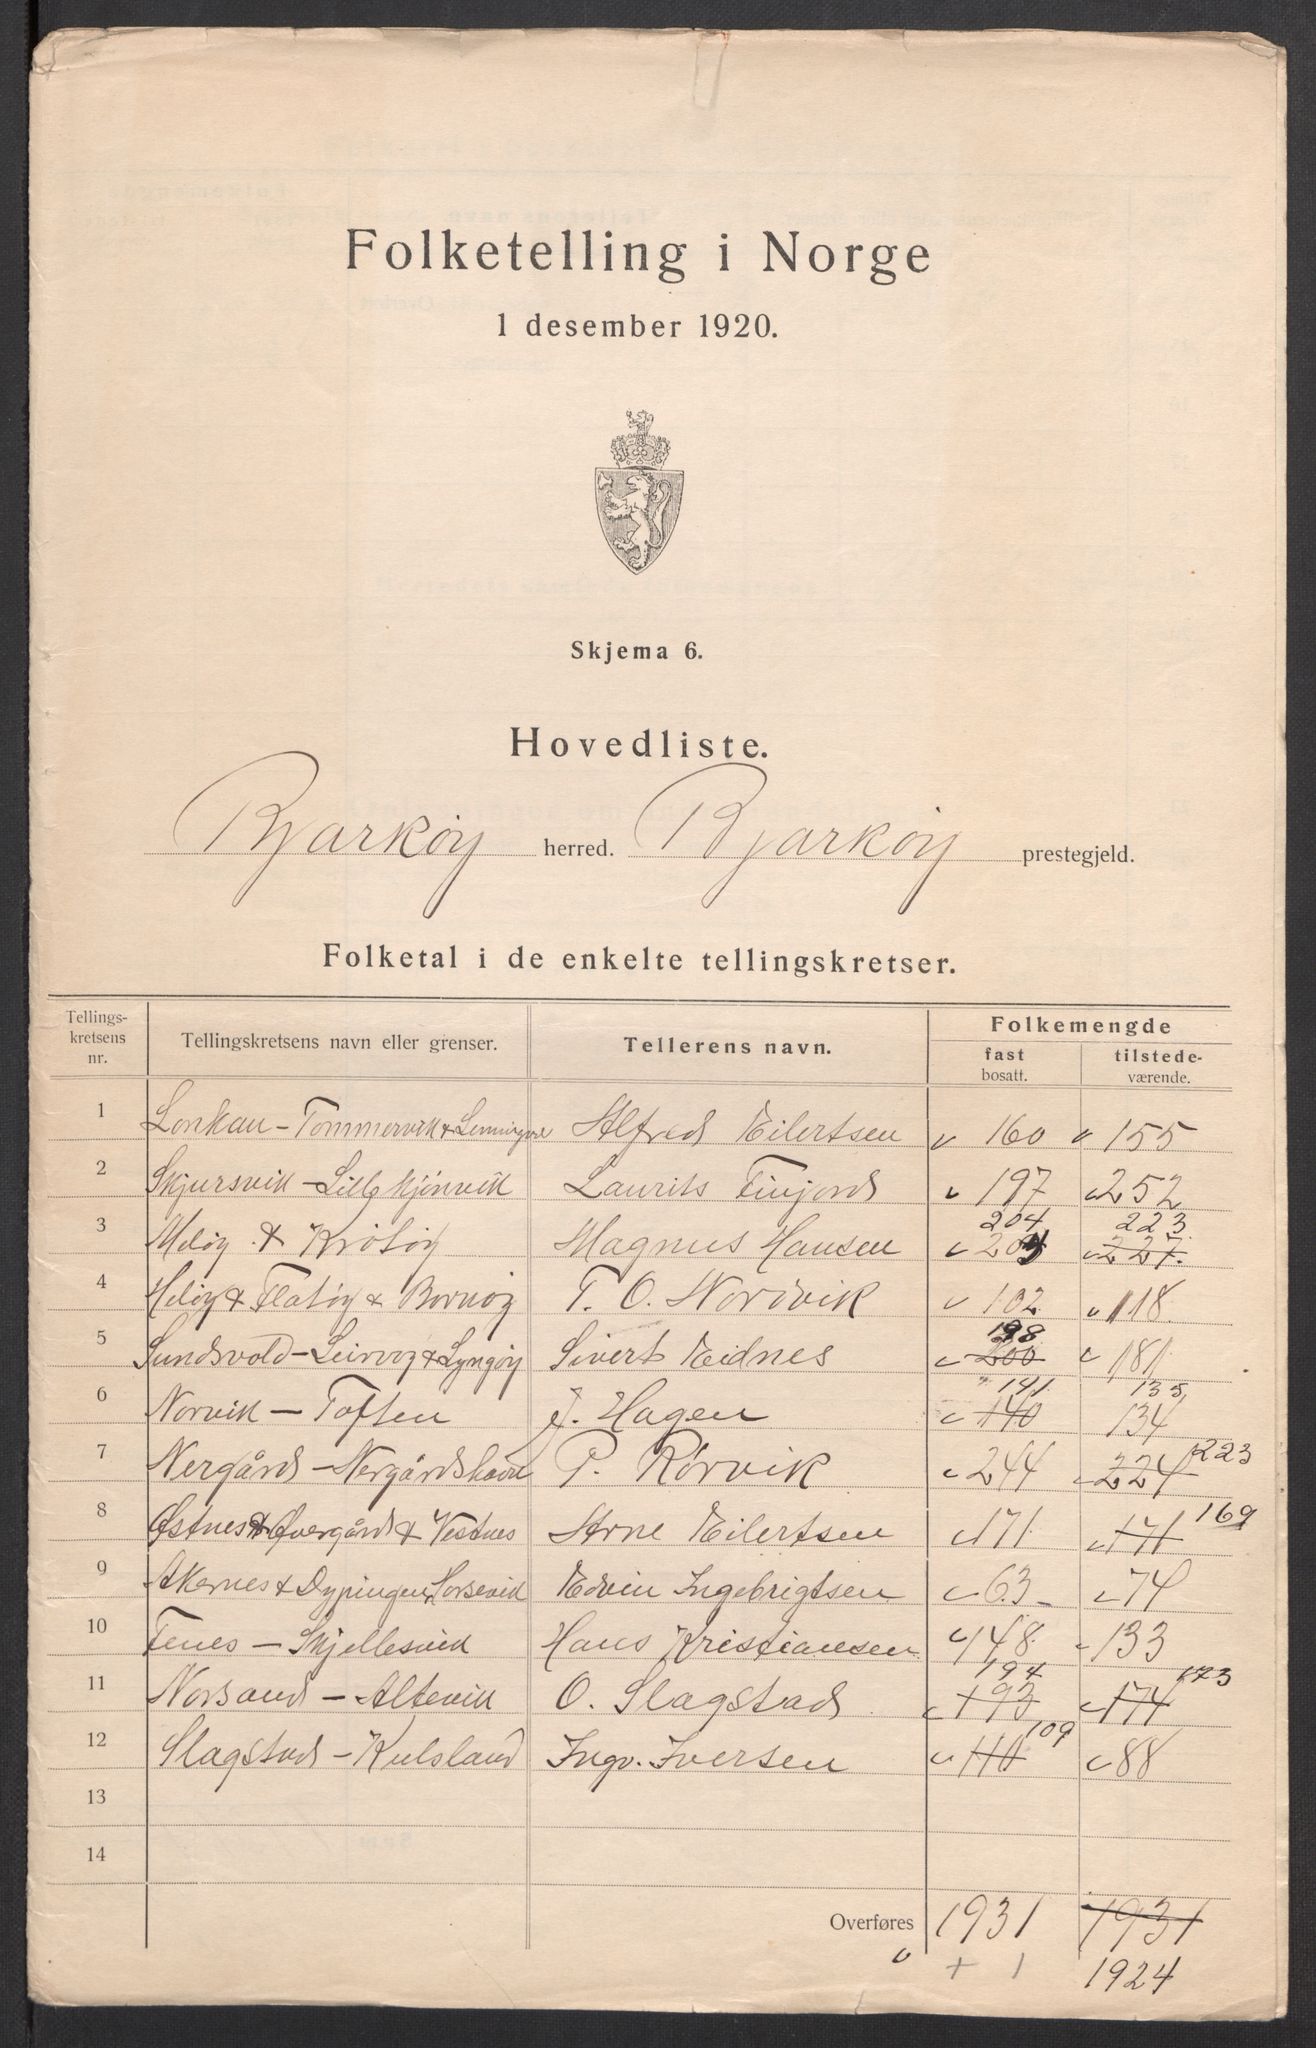 Folketelling i Norge
1 desember 1920.
Skjema 6.
Hovedliste.
Bjarkøy herred. Bjarkøy prestegjeld.
Folketal i de enkelte tellingskretser.
Tellings-kretsens nr. Tellingskretsens navn eller grenser. Tellerens navn. Folkemengde fast bosatt. tilstede-værende.
1 Lonkan - Tømmervik & Alfred Eilertsen 160 155
2 Skjursvik - Lilleskjønvik Laurits Finjord 197 252
204 223
3 Meløy & Krøtøy Magnus Hansen 227.
4 Heløy & Flatøy & Bornøy T. O. Nordvik 102 118.
198
5 Sundsvold - Leirvog & Lyngøy Sivert Eidnes 200 181.
141 135
6 Norvik - Toften J. Hagen 140 134
7 Nergård - Nergårdshavn P. Rørvik 244 224 223
8 Østnes & Øvergård & Vestnes Arne Eilertsen 171 171 169
9 Akernes & Dypingen, Sorsevik Edvin Ingebrigtsen 63 - 74
10 Fenes - Skjellesvik Hans Kristiansen 148. 133
194 173
11 Norsand - Altevik O. Slagstad 193 174
109
12 Slagstad - Kulsland Ingv. Iversen 110 88
13
14
Overføres 1931 1931
+ 1 1924